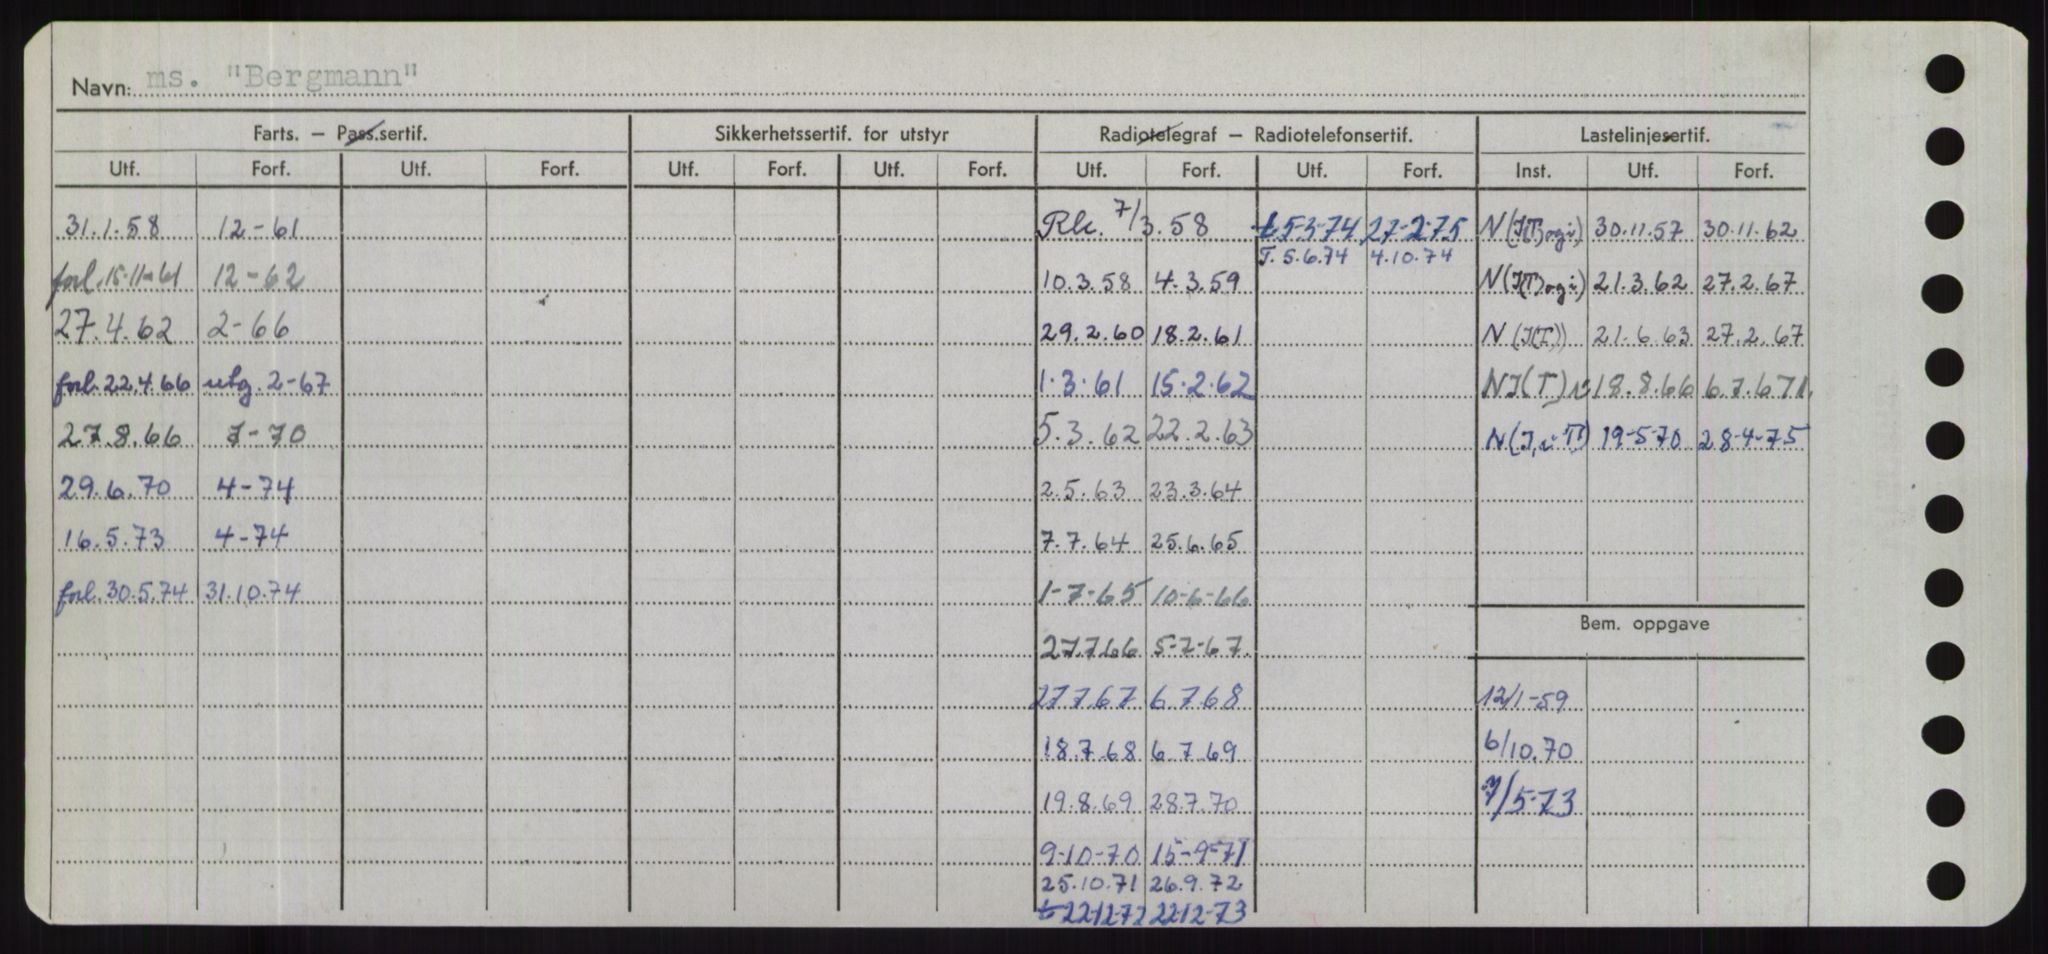 Navn: ms. "Bergmann"
Farts. — Pass.sertif. Sikkerhetssertif. for utstyr Radiotelegraf — Radiotelefonsertif. Lastelinjesertif.
Utf. Forf. Utf. Forf. Utf. Forf. Utf. Forf. Utf. Forf. Utf. Forf. Inst. Utf. Forf.
31.1.58 12-61 7/3.58 t 5-3-74 27-2-75 30.11.57 30.11.62
T. 5.6.74 4.10.74
forl. 15-11-61 12-62 10.3.58 4.3.59 21.3.62 27.2.67
27.4.62 2-66 29.2.60 18.2.61 N(I(T)) 21.6.63 27.2.67
forl. 22.4.66 utg. 2-67 1.3.61 15.2.62 18.8.66 6.7.671.
27.8.66 7-70 5.3.62 22.2.63 19-5-70 28-4-75
29.6.70 4-74 2.5.63 23.3.64
16.5.73 4-74 7.7.64 25.6.65
forl. 30.5.74 31.10.74 1-7-65 10-6-66
Bem. oppgave
27.7.66 5-7-67
27.7.67 6.7.68 12/1-59
18.7.68 6.7.69 6/10.70
19.8.69 28.7.70 /5-73
9-10-70 15-9-71
25.10.71 26.9.72
t 22-12-72 22-12-73